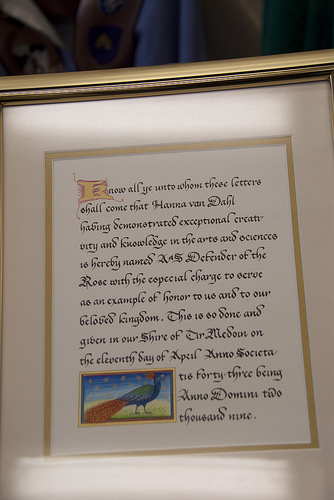 Know all ye unto whom these letters
shall come that Hanna van Dahl
having demonstrated exceptional creati-
vity and knowledge in the arts and sciences
is hereby named A&S Defender of the
Rose with the especial charge to serve
as an example of honor to us and to our
beloved kingdom. This is so done and
given in our Shire of Tir Medoin on
the eleventh day of April Anno Societa-
tis forty-three being
Anno Domini two
thousand nine.